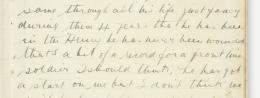 same through all his life just fancy
during them 4 years that he has been
in the Army he has never been wounded
that's a bit of a record for a front line
soldier I should think, he has got
a start on me but I don't think